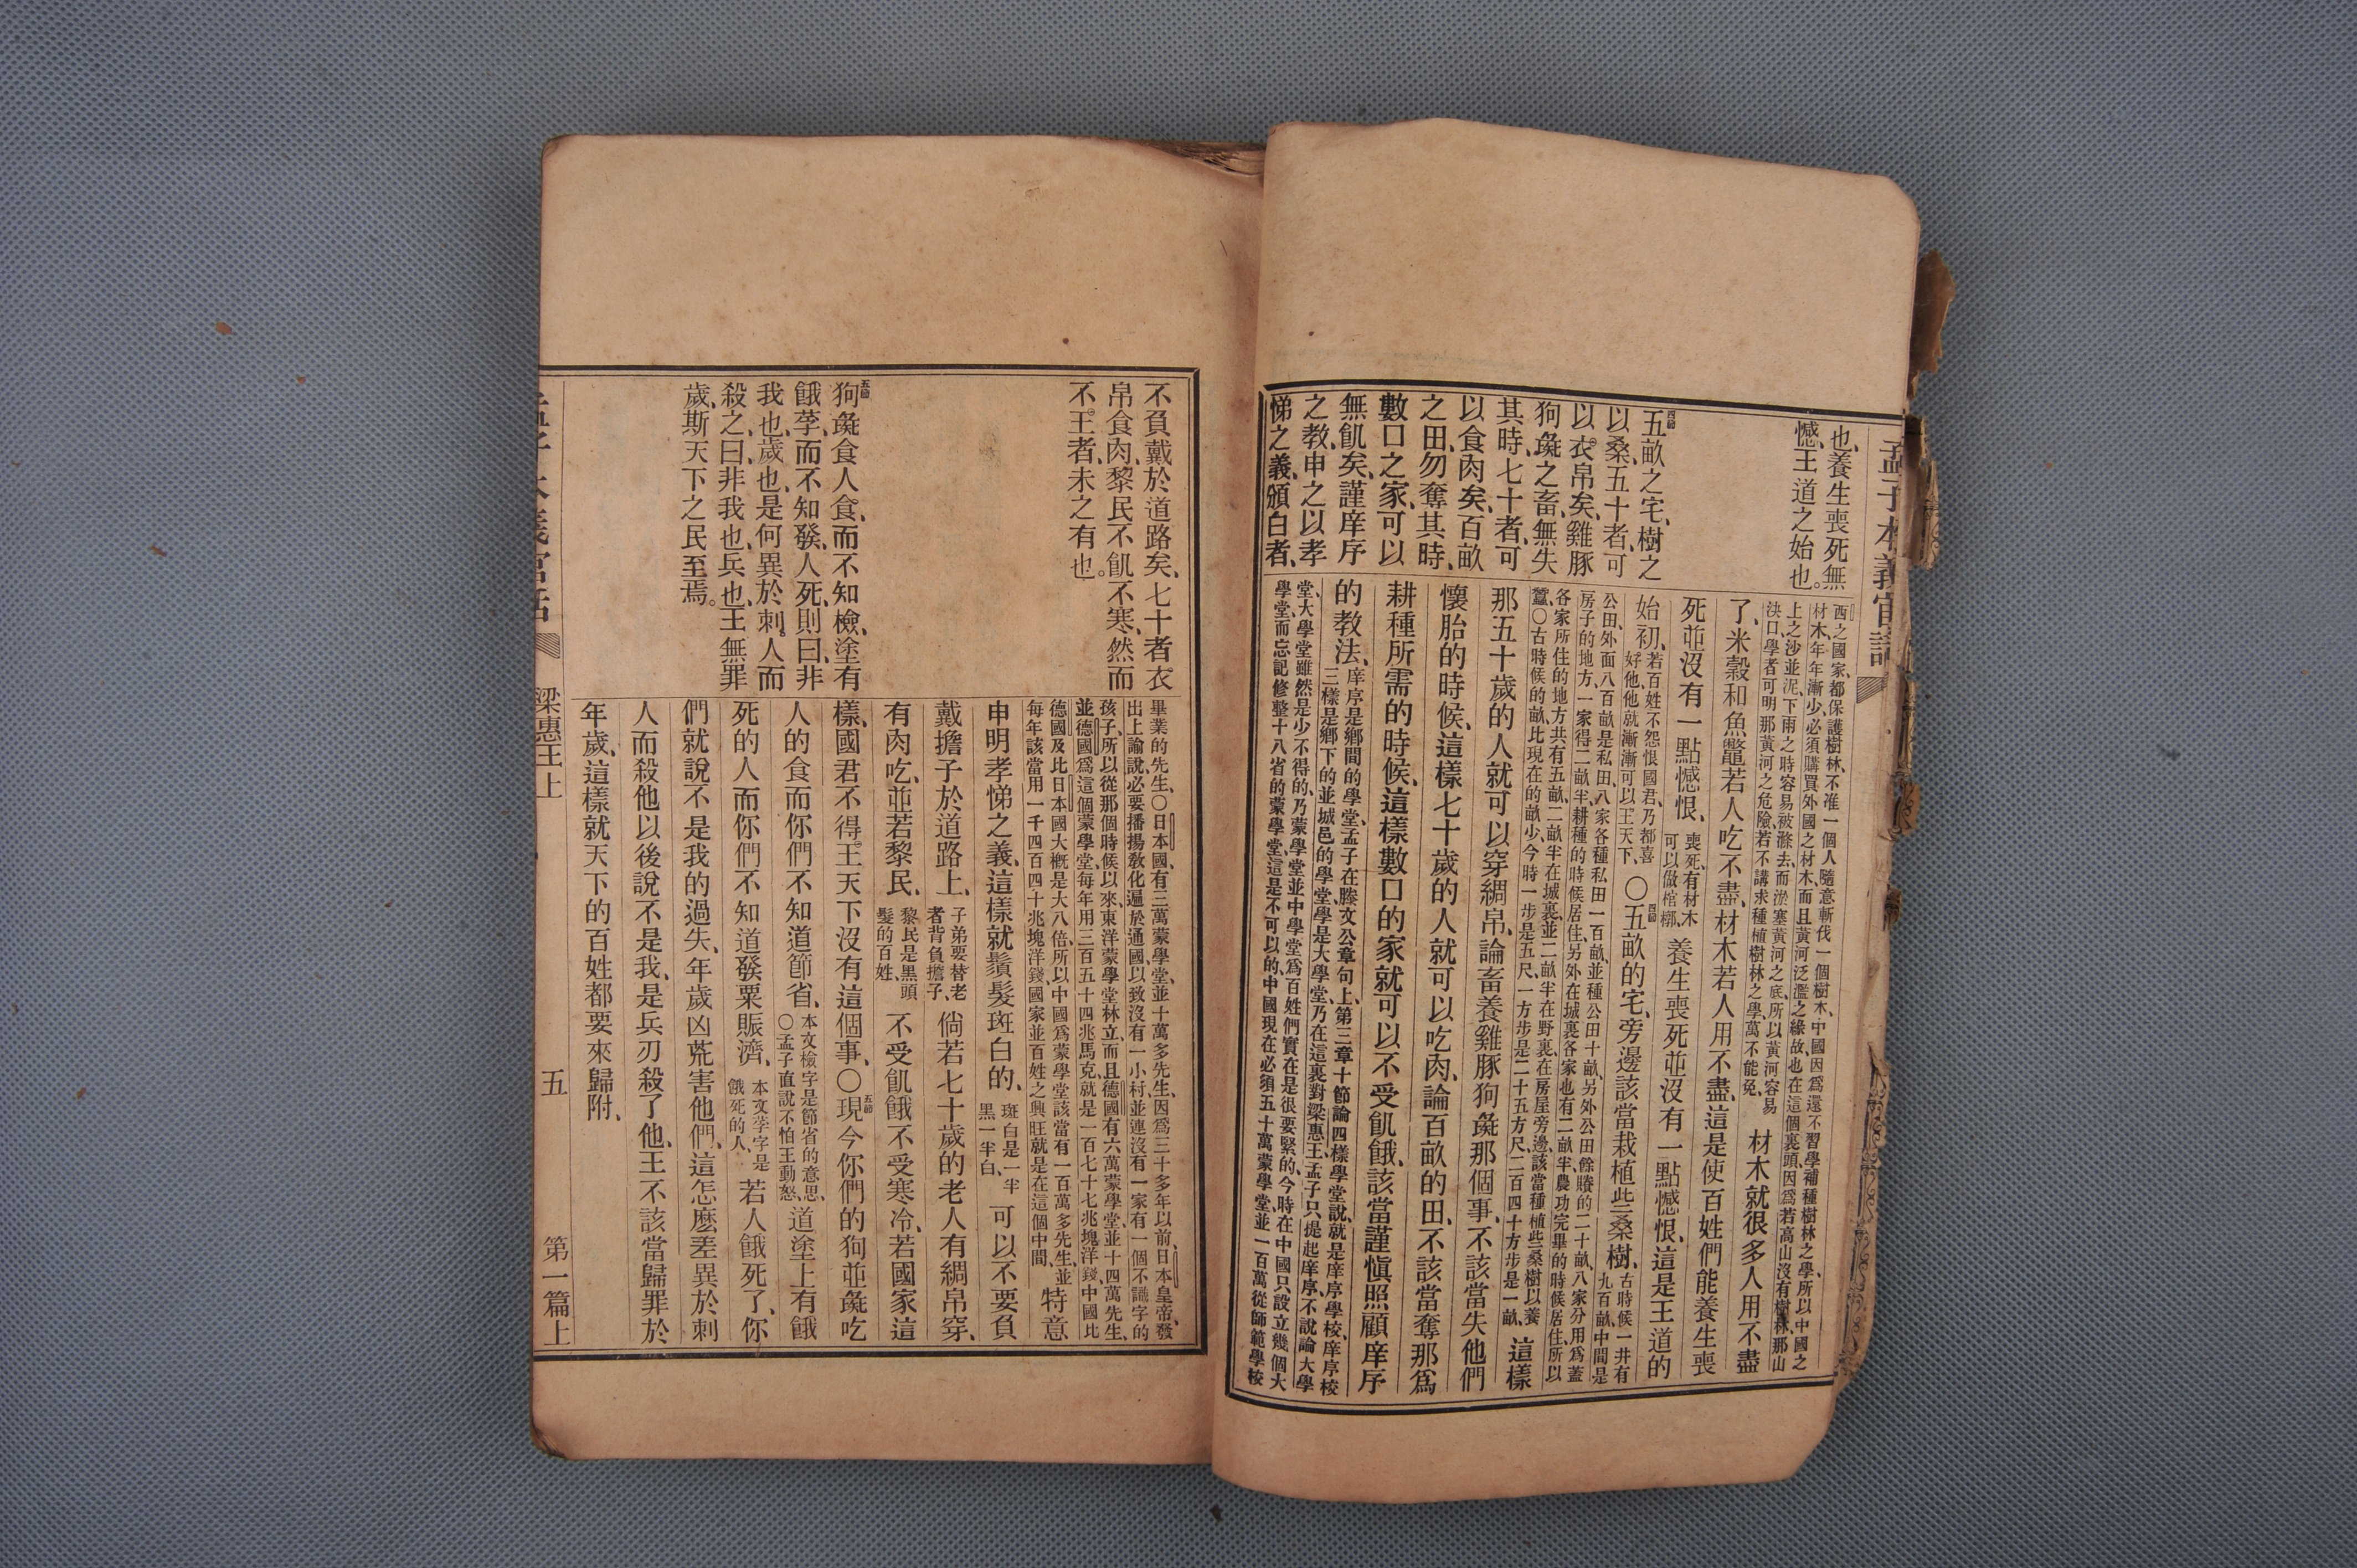 孟子本義官話
也、養生喪死無
憾、王道之始也。
五畝之宅、樹之
以桑、五十者、可
以衣帛矣、雞豚
狗彘之畜、無失
其時、七十者、可
以食肉矣、百畝
之田、勿奪其時、
數口之家、可以
無飢矣、謹庠序
之教、申之以孝
悌之義、頒白者、
西之國家、都保護樹林、不准一個人隨意斬伐一個樹木、中國因爲還不習學補種樹林之學、所以中國之
材木、年年漸少、必須購買外國之材木、而且黃河泛濫之緣故也在這個裏頭、因爲若高山沒有樹林、那山
上之沙並泥、下雨之時容易被滌去、而淤塞黃河之底、所以黃河容易
決口、學者可明那黃河之危險、若不講求種植樹林之學、萬不能免、
材木就很多、人用不盡
了、米穀和魚鼈、若人吃不盡、材木若人用不盡、這是使百姓們能養生喪
死、並沒有一點憾恨、
喪死、有材木
可以做棺槨、
養生喪死並沒有一點憾恨、這是王道的
始初、
若百姓不怨恨國君、乃都喜
好他、他就漸漸可以王天下、
〇五畝的宅、旁邊該當栽植些桑樹、
古時候一井有
九百畝、中間是
公田、外面八百畝是私田、八家各種私田一百畝、並種公田十畝、另外公田餘賸的二十畝、八家分用爲蓋
房子的地方、一家得二畝半、耕種的時候居住、另外在城裏各家也有二畝半、農功完畢的時候居住、所以
各家所住的地方共有五畝、二畝半在城裏、並二畝半在野裏、在房屋旁邊、該當種植些桑樹以養
蠶〇古時候的畝、比現在的畝少、今時一步是五尺、一方步是二十五方尺、二百四十方步是一畝、
這樣
那五十歲的人就可以穿綢帛、論畜養雞豚狗彘那個事、不該當失他們
懷胎的時候、這樣七十歲的人就可以吃肉、論百畝的田、不該當奪那爲
耕種所需的時候、這樣數口的家就可以不受飢餓、該當謹愼照顧庠序
的教法、
庠序是鄉間的學堂、孟子在滕文公章句上、第三章十節論四樣學堂說、就是庠序學校、庠序校
三樣是鄉下的並城邑的學堂、學是大學堂、乃在這裏對梁惠王、孟子只提起庠序、不說論大學
堂、大學堂雖然是少不得的、乃蒙學堂並中學堂爲百姓們實在是很要緊的、今時在中國只設立幾個大
學堂、而忘記修整十八省的蒙學堂、這是不可以的、中國現在必須五十萬蒙學堂、並一百萬從師範學校
不負戴於道路矣、七十者衣
帛食肉、黎民不飢不寒、然而
不王者、未之有也。
狗彘食人食、而不知檢、塗有
餓莩、而不知發、人死、則曰、非
我也、歲也、是何異於刺人而
殺之、曰、非我也、兵也、王無罪
歲、斯天下之民至焉。
畢業的先生、〇日本國、有三萬蒙學堂、並十萬多先生、因爲三十多年以前、日本皇帝、發
出上諭說、必要播揚教化遍於通國、以致沒有一小村、並連沒有一家有一個不識字的
孩子、所以從那個時候以來、東洋蒙學堂林立、而且德國有六萬蒙學堂、並十四萬先生、
並德國爲這個蒙學堂、每年用三百五十四兆馬克、就是一百七十七兆塊洋錢、中國比
德國及比日本國大概是大八倍、所以中國爲蒙學堂該當有一百萬多先生、並
每年該當用一千四百四十兆塊洋錢、國家並百姓之興旺就是在這個中間、
特意
申明孝悌之義、這樣就鬚髮斑白的、
斑白是一半
黑一半白、
可以不要負
戴擔子於道路上、
子弟要替老
者背負擔子、
倘若七十歲的老人有綢帛穿、
有肉吃、並若黎民、
黎民是黑頭
髮的百姓
不受飢餓不受寒冷、若國家這
樣、國君不得王天下沒有這個事、〇現今你們的狗並彘吃
人的食而你們不知道節省、
本文檢字是節省的意思、
〇孟子直說不怕王動怒、
道塗上有餓
死的人而你們不知道發粟賑濟、
本文莩字是
餓死的人、
若人餓死了、你
們就說不是我的過失、年歲凶荒害他們、這怎麽差異於刺
人而殺他以後說不是我、是兵刃殺了他、王不該當歸罪於
年歲、這樣就天下的百姓都要來歸附、
梁惠王上
五
第一篇上